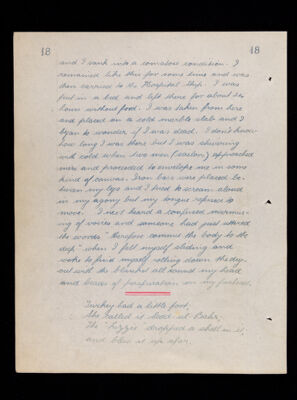 18 18
and I sank into a comatose condition. I
remained like this for some time and was
then carried to the Hospital Ship. I was
put in a bed and left there for about 24
hours without food. I was taken from here
and placed on a cold marble slab and I
began to wonder if I was dead. I don't know
how long I was there but I was shivering
with cold when two men (sailors) approached
me and proceeded to envelope me in some
kind of canvas. Iron bars were placed be-
tween my legs and I tried to scream aloud
in my agony but my tongue refused to
move. I next heard a confused murmur-
ing of voices and someone had just uttered
the words "therefore commit the body to the
deep" when I felt myself sliding and
woke to find myself rolling down the dug-
out with the blanket all round my head
and beads of perspiration on my forehead.
Turkey had a little fort,
She called it Sedd-ul-Bahr,
The "Lizzie" dropped a shell in it
and blew it up afar.